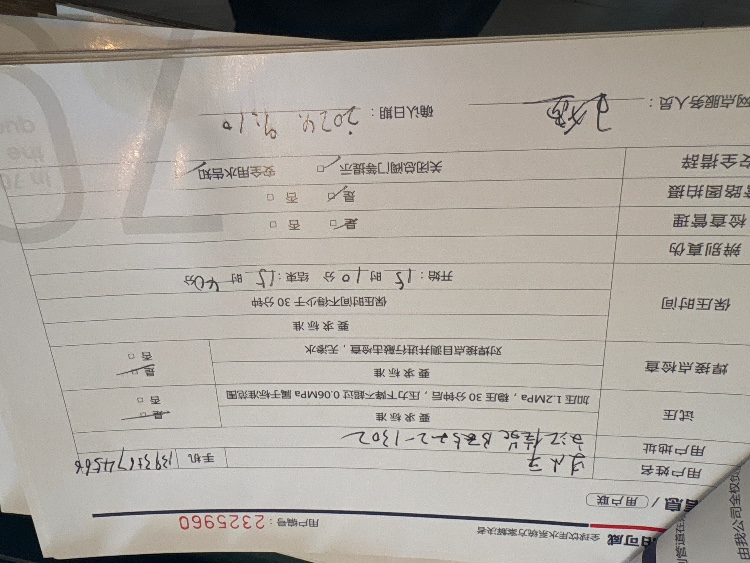 可威
全球饮用水系统方案解决者
用户编号：2325960
信息 / 用户联
用户姓名
手机
用户地址
试压
要求标准
加压1.2MPa，稳压30分钟后，压力下降不超过0.06MPa属于标准范围
是 □
否 □
焊接点检查
要求标准
对焊接点目测并进行敲击检查，无渗水
是 □
否 □
保压时间
要求标准
保压时间不得少于30分钟
开始：15 时 10 分 结束：15 时 40 分
辨别真伪
检查管理
是 □ 否 □
管路图拍摄
是 □ 否 □
安全措辞
关闭总阀门等提示 □ 安全用水告知
网点服务人员：
确认日期：2024.9.10